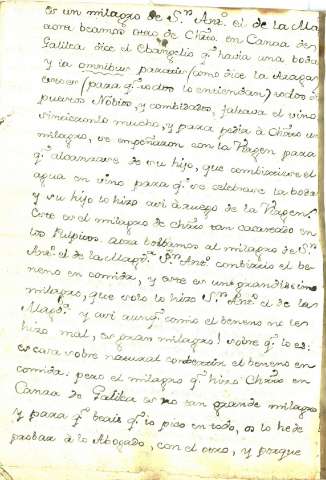 es un milagro de S.n Ant.o el de la Ma
aora bcamos otro de Chr̃o en Canaa de
Galilea dice el Ebangelio q.e havia una boda
y ia omnibus (como dice la
creer (para q.e todos lo entiendan) todos
puertos Nobios, y combidados, faltava el vino
sintieronlo mucho, y para pedir à Chr̃o un
milagro, se empeñaron con la Virgen para
q.e alcanzare de su hijo, que combirtiere el
agua en vino para q.e se celebrare la boda
y su hijo lo hizo asi à ruego de la Virgen.
Este es el milagro de chr̃o tan cacareado en
los Pulpitos. aora bolbamos al milagro de S.n
Ant.o el de la Magd.a S.n Ant.o combirtio el be-
neno en comida, y este es un grandissimo
milagro, que solo lo hizo S.n Ant.o el de la
Magd.a y asi aunq.e comio el beneno no le
hizo mal, es gran milagro! sobre q.e lo es:
es cosa sobre natural combertir el beneno en
comida: pero el milagro q.e hizo Chr̃o en
Canaa de Galilea es no tan grande milagro
y para q.e beais q.e io pico en todo, os lo he de
probar à lo Abogado, con el otro, y porque